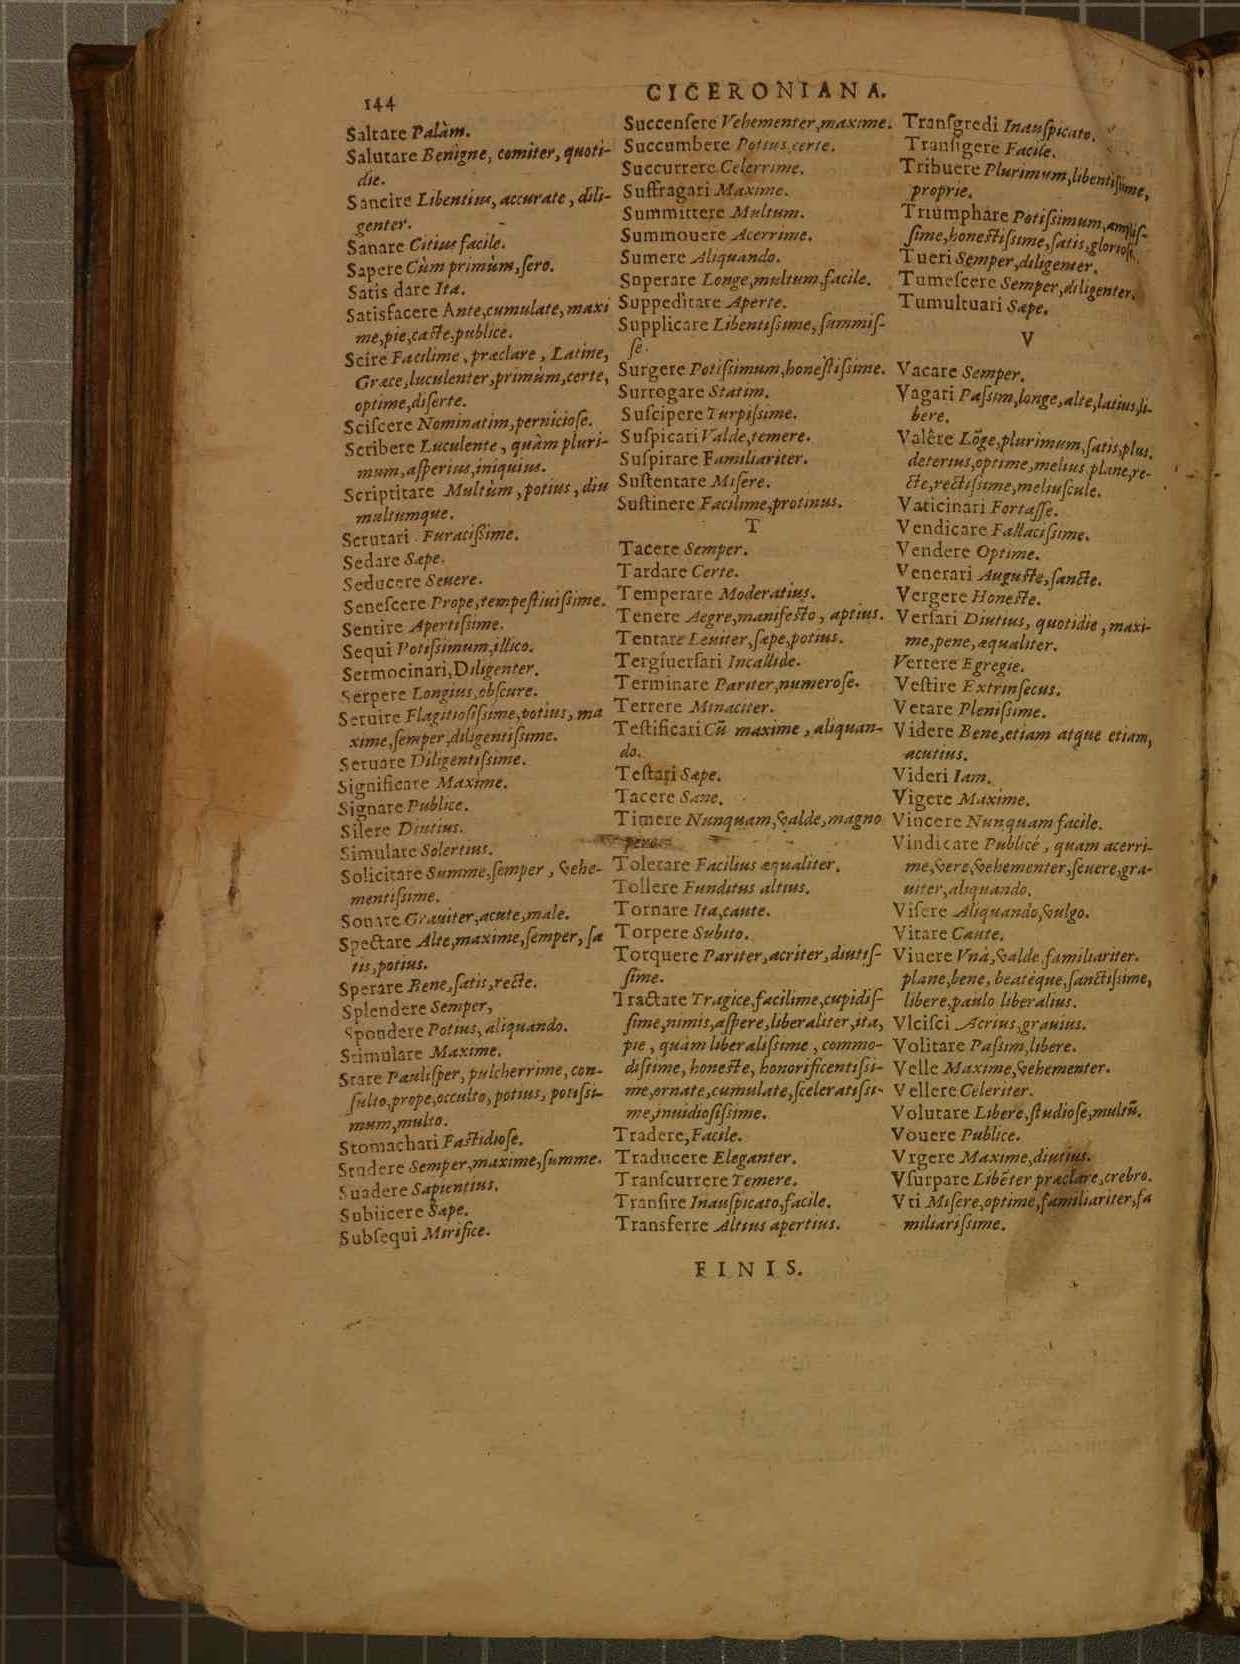 144
CICERONIANA.
Saltare Palàm.
Salutare Benigne, comiter, quoti-
die.
Sancire Libentius, accurate, dili-
genter.
Sanare Citius facile.
Sapere Cùm primùm, ſero.
Satis dare Ita.
Satisfacere Ante, cumulate, maxi
me, pie, caſte, publice.
Scire Facilime, præclare, Latine,
Græce, luculenter, primùm, certe,
optime, diſerte.
Sciſcere Nominatim, pernicioſe.
Scribere Luculente, quàm pluri-
mum, aſperius, iniquius.
Scriptitare Multùm, potius, diu
multumque.
Scrutari Furacißime.
Sedare Sæpe.
Seducere Seuere.
Seneſcere Prope, tempeſtiuiſsime.
Sentire Apertiſsime.
Sequi Potiſsimum, illico.
Sermocinari, Diligenter.
Serpere Longius, obſcure.
Seruire Flagitioſiſsime, potius, ma
xime, ſemper, diligentiſsime.
Seruare Diligentiſsime.
Significare Maxime.
Signare Publice.
Silere Diutius.
Simulare Solertius.
Solicitare Summe, ſemper, vehe-
mentiſsime.
Sonare Grauiter, acute, male.
Spectare Alte, maxime, ſemper, ſa
tis, potius.
Sperare Bene, ſatis, recte.
Splendere Semper,
Spondere Potius, aliquando.
Stimulare Maxime.
Stare Pauliſper, pulcherrime, con-
ſulto, prope, occulto, potius, potiſsi-
mum, multo.
Stomachari Faſtidioſe.
Studere Semper, maxime, ſumme.
Suadere Sapientius.
Subiicere Sæpe.
Subſequi Mirifice.
Succenſere Vehementer, maxime.
Succumbere Potius, certe.
Succurrere Celerrime.
Suffragari Maxime.
Summittere Multum.
Summouere Acerrime.
Sumere Aliquando.
Superare Longe, multum, facile.
Suppeditare Aperte.
Supplicare Libentiſsime, ſummiſ-
ſe.
Surgere Potiſsimum, honeſtiſsime.
Surrogare Statim.
Suſcipere Turpiſsime.
Suſpicari Valde, temere.
Suſpirare Familiariter.
Suſtentare Miſere.
Suſtinere Facilime, protinus.
T
Tacere Semper.
Tardare Certe.
Temperare Moderatius.
Tenere Aegre, manifeſto, aptius.
Tentare Leuiter, ſæpe, potius.
Tergiuerſari Incallide.
Terminare Pariter, numeroſe.
Terrere Minaciter.
Teſtificari Cũ maxime, aliquan-
do.
Teſtari Sæpe.
Tacere Sane.
Timere Nunquam, valde, magno
pere.
Tolerare Facilius æqualiter.
Tollere Funditus altius.
Tornare Ita, caute.
Torpere Subito.
Torquere Pariter, acriter, diutiſ-
ſime.
Tractare Tragice, facilime, cupidiſ-
ſime, nimis, aſpere, liberaliter, ita,
pie, quàm liberaliſsime, commo-
diſsime, honeſte, honorificentiſsi-
me, ornate, cumulate, ſceleratiſsi-
me, inuidioſiſsime.
Tradere, Facile.
Traducere Eleganter.
Tranſcurrere Temere.
Tranſire Inauſpicato, facile.
Transferre Altius apertius.
Tranſgredi Inauſpicato.
Tranſigere Facile.
Tribuere Plurimum, libentiſsime,
proprie.
Triumphare Potiſsimum, ampliſ-
ſime, honeſtiſsime, ſatis, glorioſe.
Tueri Semper, diligenter.
Tumeſcere Semper, diligenter.
Tumultuari Sæpe.
V
Vacare Semper.
Vagari Paſsim, longe, alte, latius, li-
bere.
Valêre Lõge, plurimum, ſatis, plus,
deterius, optime, melius plane, re-
cte, rectiſsime, meliuſcule.
Vaticinari Fortaſſe.
Vendicare Fallaciſsime.
Vendere Optime.
Venerari Auguſte, ſancte.
Vergere Honeſte.
Verſari Diutius, quotidie, maxi-
me, pene, æqualiter.
Vertere Egregie.
Veſtire Extrinſecus.
Vetare Pleniſsime.
Videre Bene, etiam atque etiam,
acutius.
Videri Iam.
Vigere Maxime.
Vincere Nunquam facile.
Vindicare Publicè, quam acerri-
me, vere, vehementer, ſeuere, gra-
uiter, aliquando.
Viſere Aliquando, vulgo.
Vitare Caute.
Viuere Vnà, valde, familiariter.
plane, bene, beateque, ſanctiſsime,
libere, paulo liberalius.
Vlciſci Acrius, grauius.
Volitare Paſsim, libere.
Velle Maxime, vehementer.
Vellere Celeriter.
Volutare Libere, ſtudioſe, multũ.
Vouere Publice.
Vrgere Maxime, diutius.
Vſurpare Libẽter præclare, crebro.
Vti Miſere, optime, familiariter, fa
miliariſsime.
FINIS.